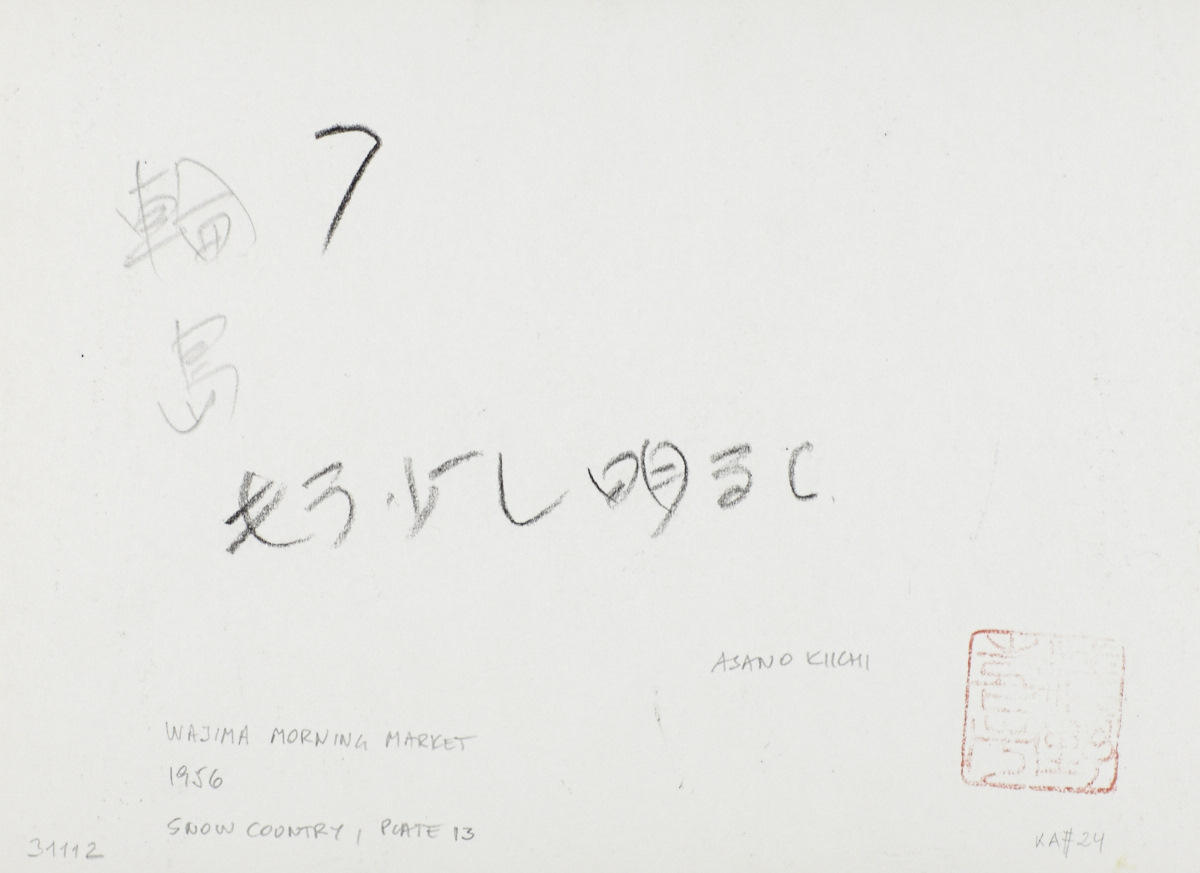 輪島
7
もう少し明るく
ASANO KIICHI
WAJIMA MORNING MARKET
1956
SNOW COUNTRY, PLATE 13
31112
KA#24